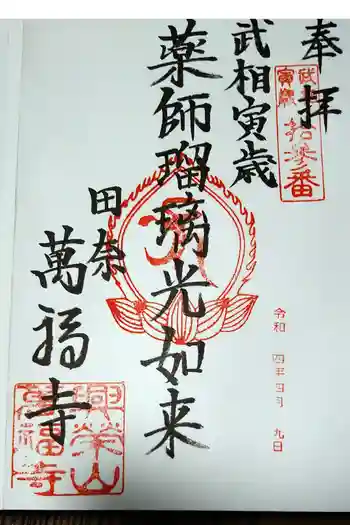 奉拝
武相
寅歳
拾参番
武相寅歳
薬師瑠璃光如来
田奈
萬福寺
令和 四年 四月 九日
興榮山
萬福寺